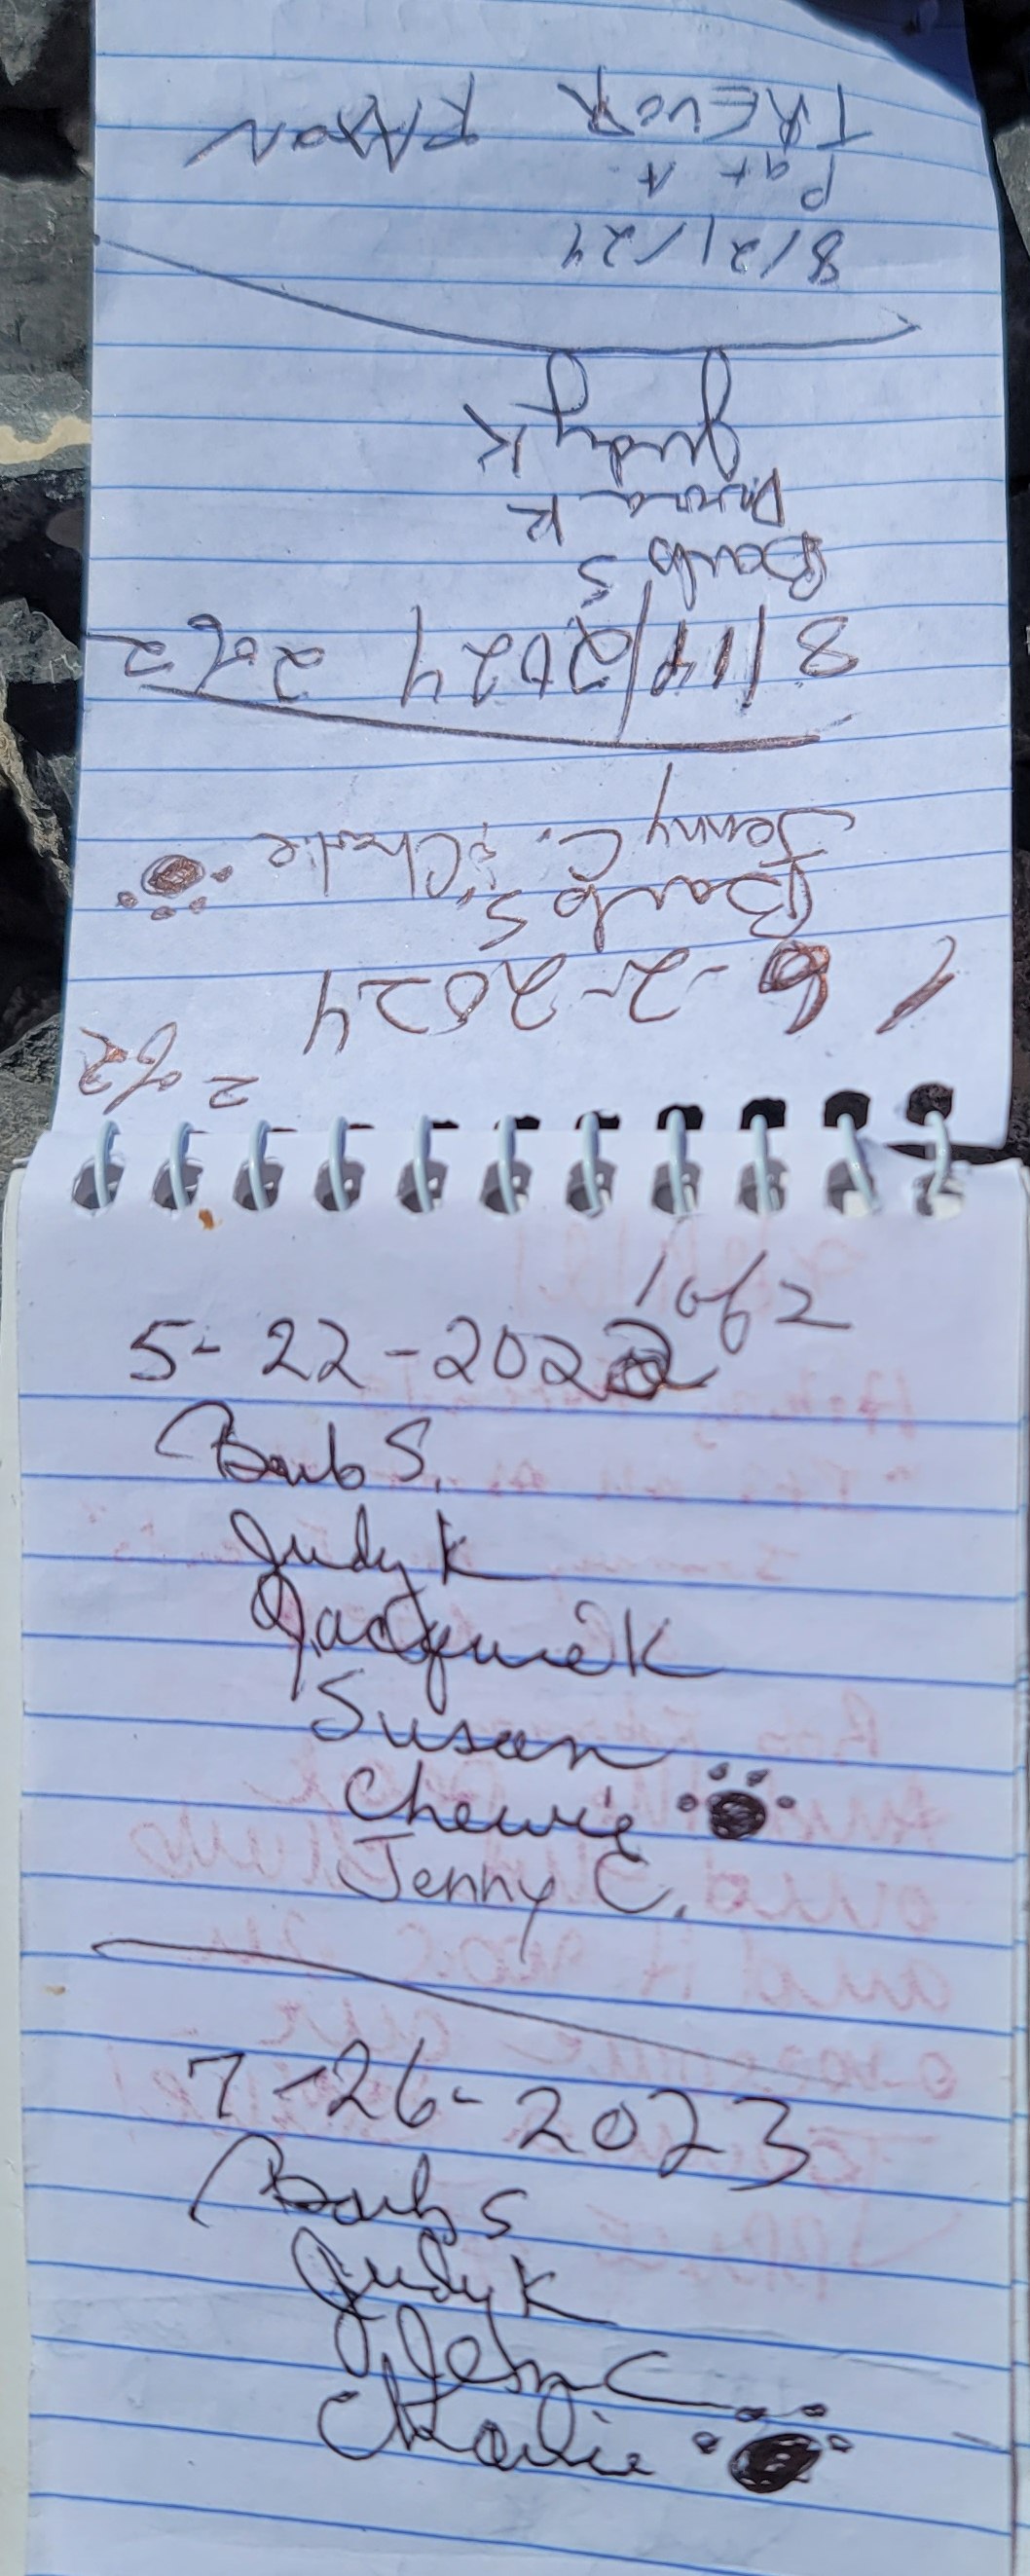 1 of 2
5-22-2022
Barb S.
Judy K
Jacquie K
Susan
Chewie
Jenny C.
7-26-2023
Barb S
Judy K
Jen C
Charlie
2 of 2
6-2-2024
Barb S.
Jenny C. & Charlie
8/14/2024 2 of 2
Barb S
Donna K
Judy K
8/21/24
Pat A.
TREVOR